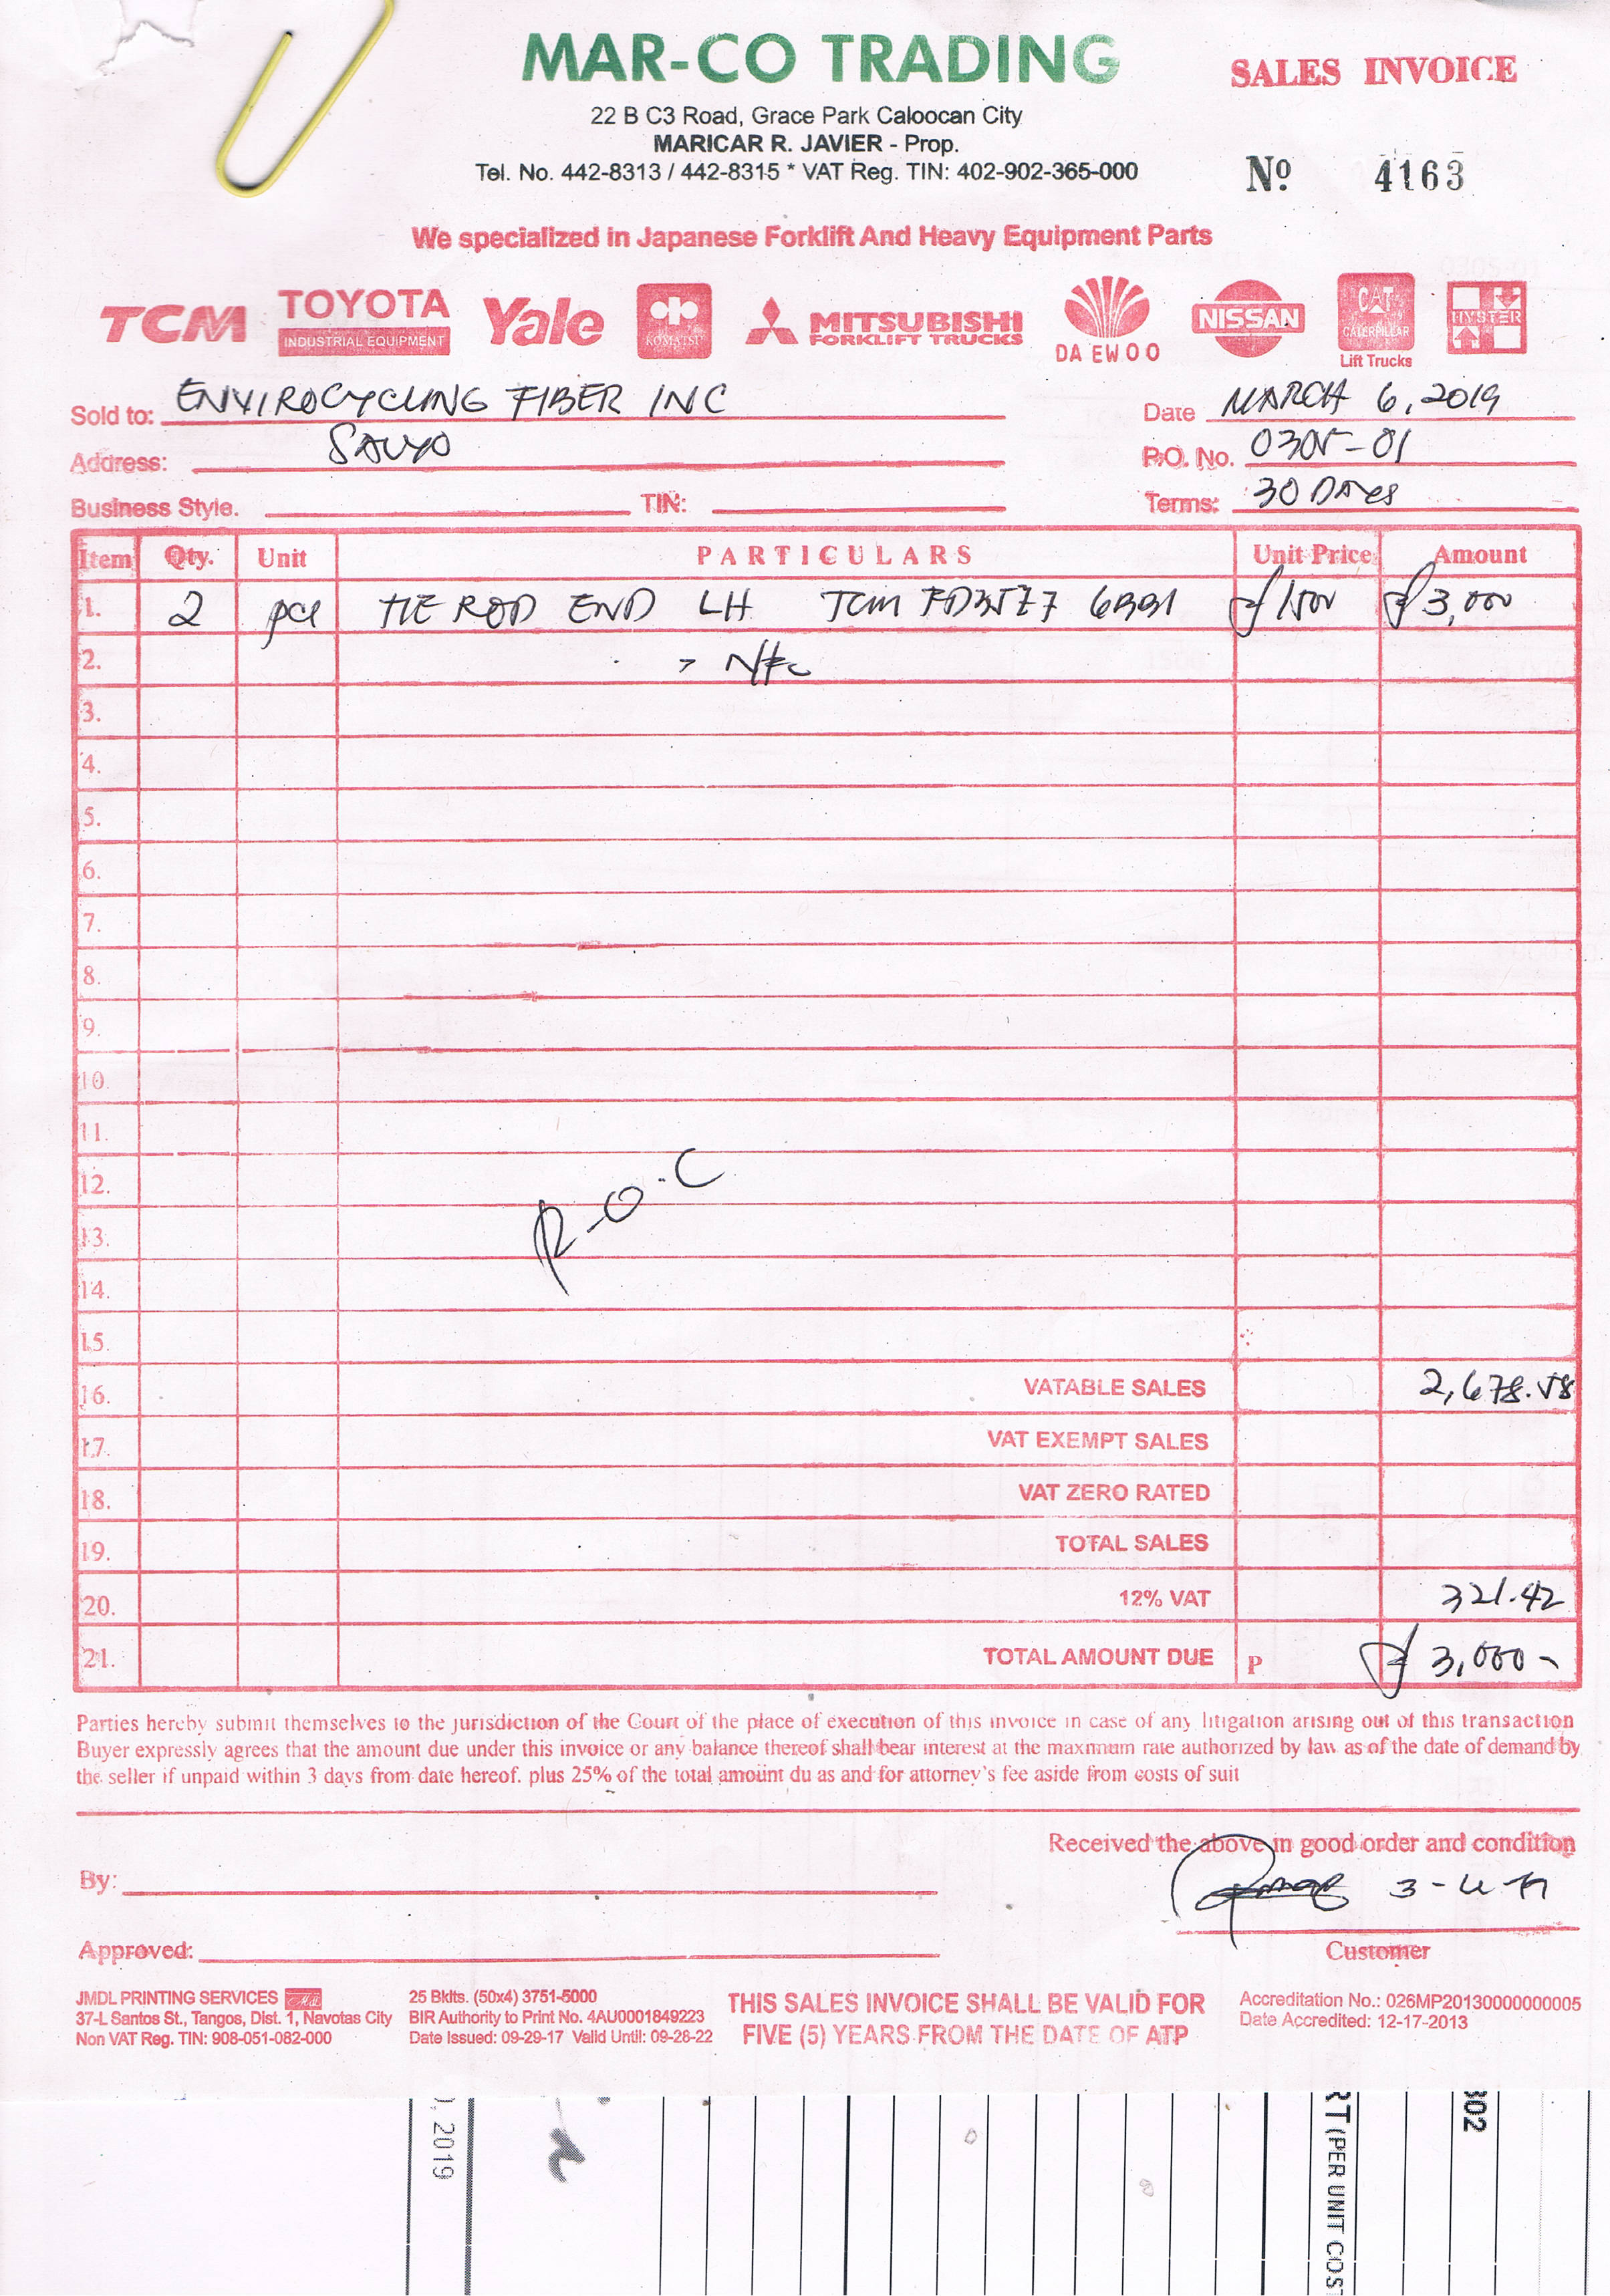 MAR-CO TRADING
SALES INVOICE
22 B C3 Road, Grace Park Caloocan City
MARICAR R. JAVIER - Prop.
Tel. No. 442-8313 / 442-8315 * VAT Reg. TIN: 402-902-365-000
Nº 4163
We specialized in Japanese Forklift And Heavy Equipment Parts
TCM TOYOTA Yale KOMATSU MITSUBISHI DAEWOO NISSAN CAT HYSTER
INDUSTRIAL EQUIPMENT FORKLIFT TRUCKS CATERPILLAR
Lift Trucks
Sold to: ENVIROCYCLING FIBER INC Date MARCH 6, 2019
Address: SAUYO P.O. No. 0305-01
Business Style. TIN: Terms: 30 DAYS
Item Qty. Unit PARTICULARS Unit Price Amount
1. 2 pcs TIE ROD END LH TCM FD35Z7 ₱1500 ₱3,000
2.
3.
4.
5.
6.
7.
8.
9.
10.
11.
12. R-O-C
13.
14.
15.
16. VATABLE SALES 2,678.58
17. VAT EXEMPT SALES
18. VAT ZERO RATED
19. TOTAL SALES
20. 12% VAT 321.42
21. TOTAL AMOUNT DUE P ₱3,000-
Parties hereby submit themselves to the jurisdiction of the Court of the place of execution of this invoice in case of any litigation arising out of this transaction
Buyer expressly agrees that the amount due under this invoice or any balance thereof shall bear interest at the maxnnum rate authorized by law as of the date of demand by
the seller if unpaid within 3 days from date hereof. plus 25% of the total amount du as and for attorney's fee aside from costs of suit
Received the above in good order and condition
By:
Approved:
Customer
JMDL PRINTING SERVICES
37-L Santos St., Tangos, Dist. 1, Navotas City
Non VAT Reg. TIN: 908-051-082-000
25 Bklts. (50x4) 3751-5000
BIR Authority to Print No. 4AU0001849223
Date Issued: 09-29-17 Valid Until: 09-28-22
THIS SALES INVOICE SHALL BE VALID FOR
FIVE (5) YEARS FROM THE DATE OF ATP
Accreditation No.: 026MP20130000000005
Date Accredited: 12-17-2013
), 2019
RT (PER UNIT COS
302